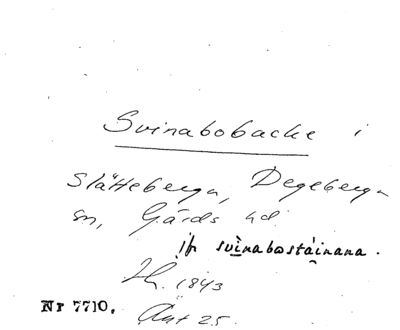 Svinabobacke i
Slätteberga, Degeberga
sn, Gärds hd.
jfr svìnabostáinana.
Lh. 1843
Nr 7710. Ant 25.